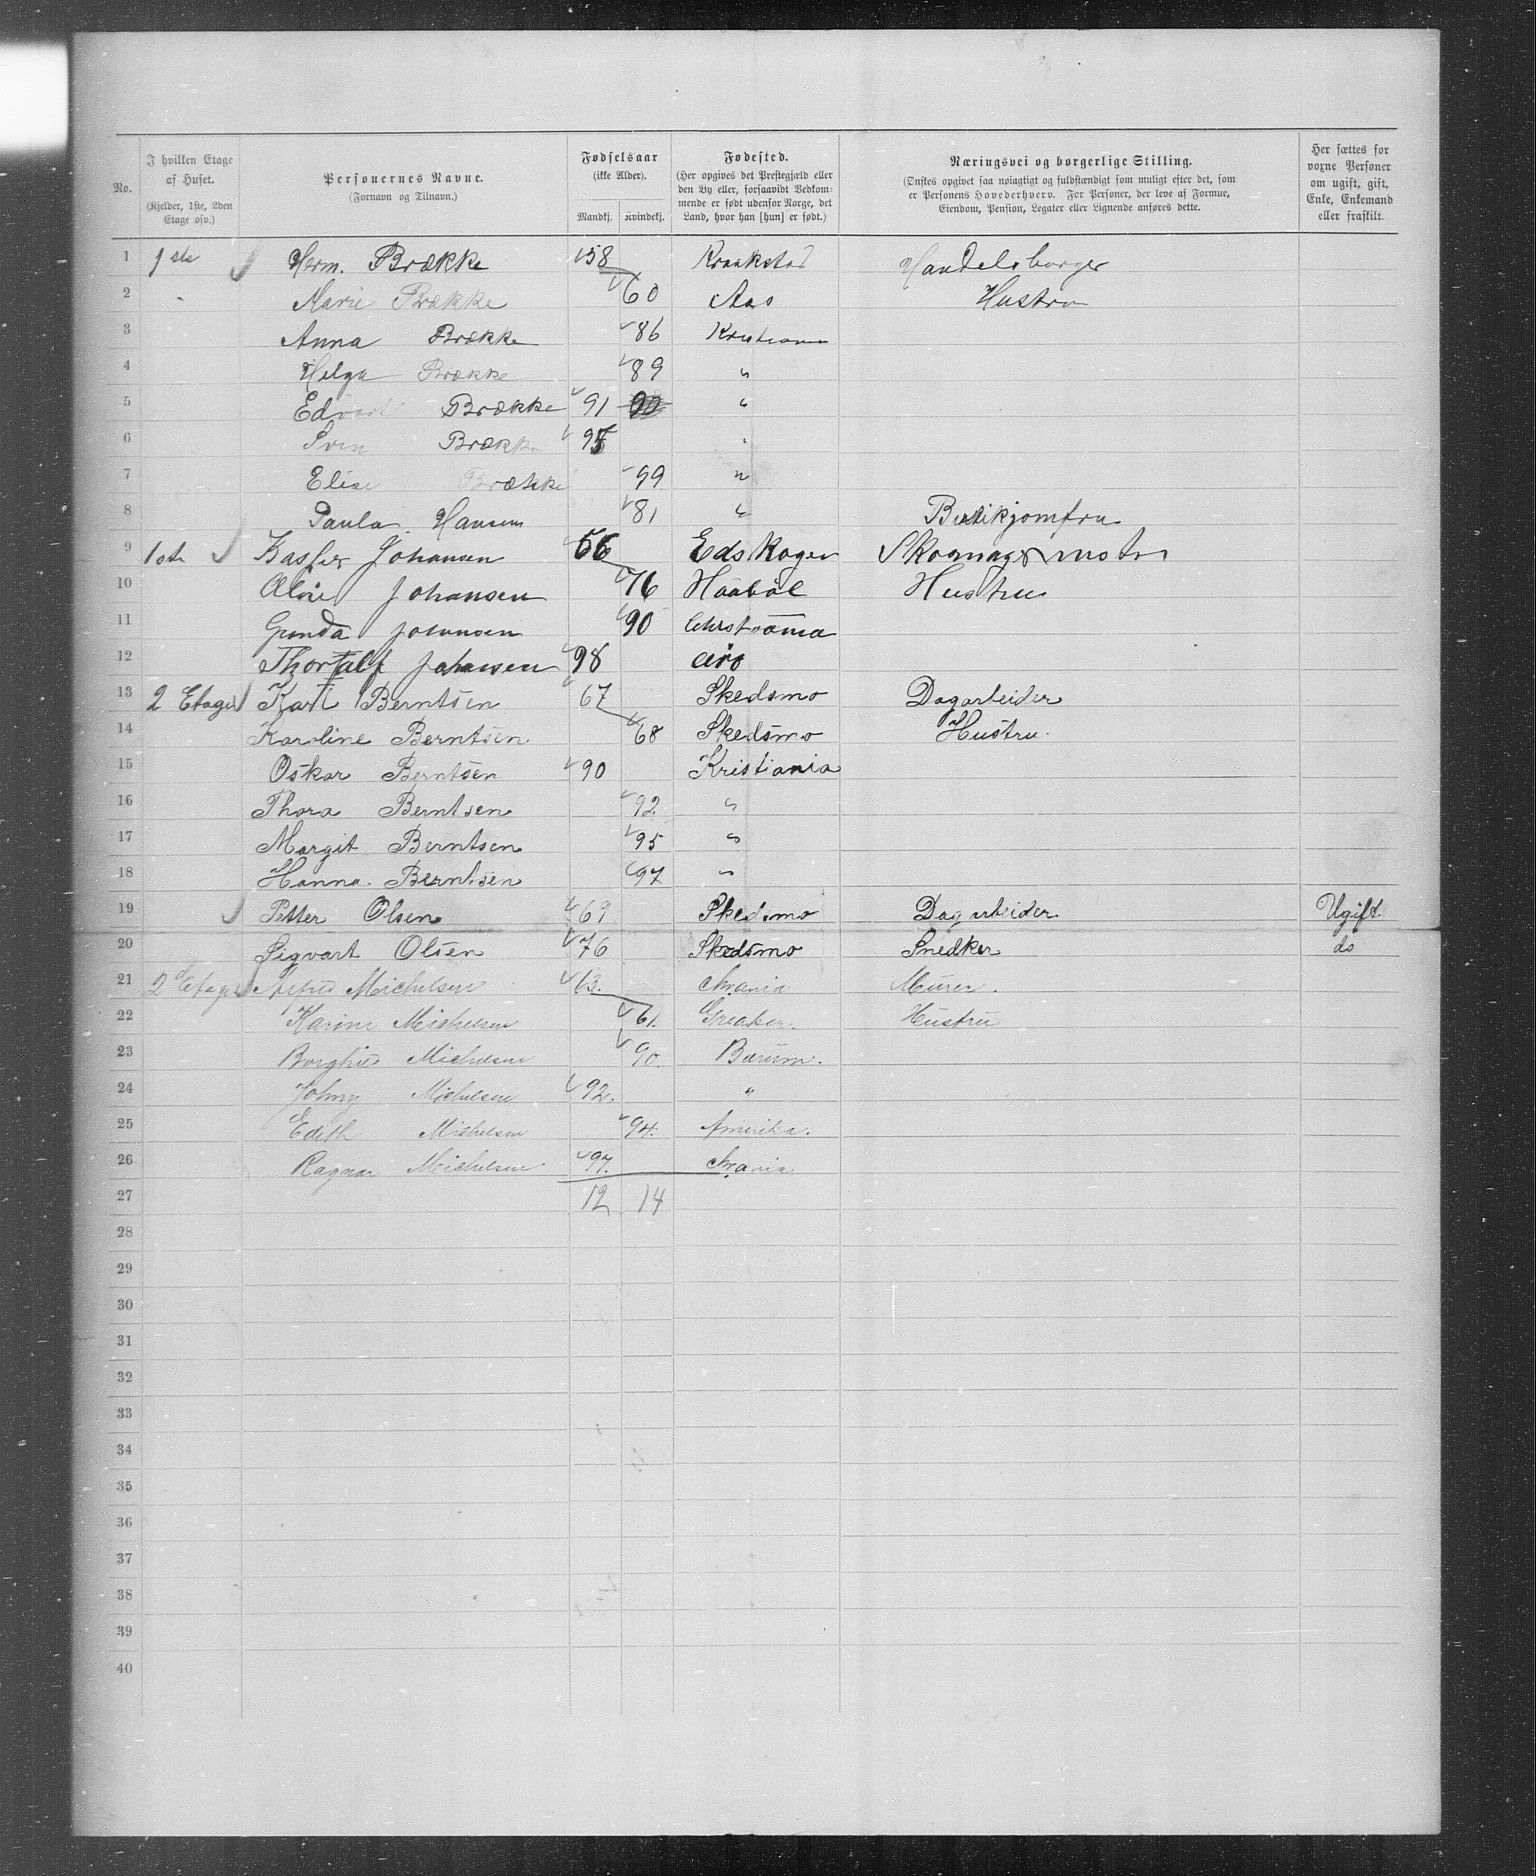 No.
I hvilken Etage af Huset. (Kjelder, 1ste, 2den Etage osv.)
Personernes Navne. (Fornavn og Tilnavn.)
Fødselsaar (ikke Alder). Mandkj. Kvindekj.
Fødested. (Her opgives det Prestegjæld eller den By eller, forsaavidt Vedkommende er født udenfor Norge, det Land, hvor han [hun] er født.)
Næringsvei og borgerlige Stilling. (Ønskes opgivet saa nøiagtigt og fuldstændigt som muligt efter det, som er Personens Hovederhverv. For Personer, der leve af Formue, Eiendom, Pension, Legater eller Lignende anføres dette.)
Her sættes for voxne Personer om ugift, gift, Enke, Enkemand eller fraskilt.
1 1ste Herm. Brække 58 Kraakstad Handelsborger
2 " Marie Brække 60 Aas Hustru
3 Anna Brække 86 Kristiania
4 Helga Brække 89 "
5 Edvart Brække 91 90 "
6 Sven Brække 95 "
7 Elise Brække 99 "
8 Paula Hansen 81 " Butikjomfru
9 1ste Kasper Johansen 56 Edskoger
10 Johansen 76 Haabøl Hustru
11 Gunda Johansen 90 Christiania
12 Thoralf Johansen 98
13 2 Etage Karl Berntsen 67 Skedsmo Dagarbeider
14 Karoline Berntsen 68 Skedsmo Hustru.
15 Oskar Berntsen 90 Kristiania
16 Thora Berntsen 92 "
17 Margit Berntsen 95 "
18 Hanna. Berntsen 97 "
19 Petter Olsen 69 Skedsmo Dagarbeider Ugift.
20 Sigvart Olsen 76 Skedsmo Snedker do
21 2 Etage Michelsen 63. Chrania Murer.
22 Karine Michelsen 61. Greaker. Hustru
23 Borghild Michelsen 90. Bærum.
24 Johny Michelsen 92. "
25 Edith Michelsen 94. Amerika.
26 Ragnar Michelsen 97. Chrania
27 12 14
28
29
30
31
32
33
34
35
36
37
38
39
40